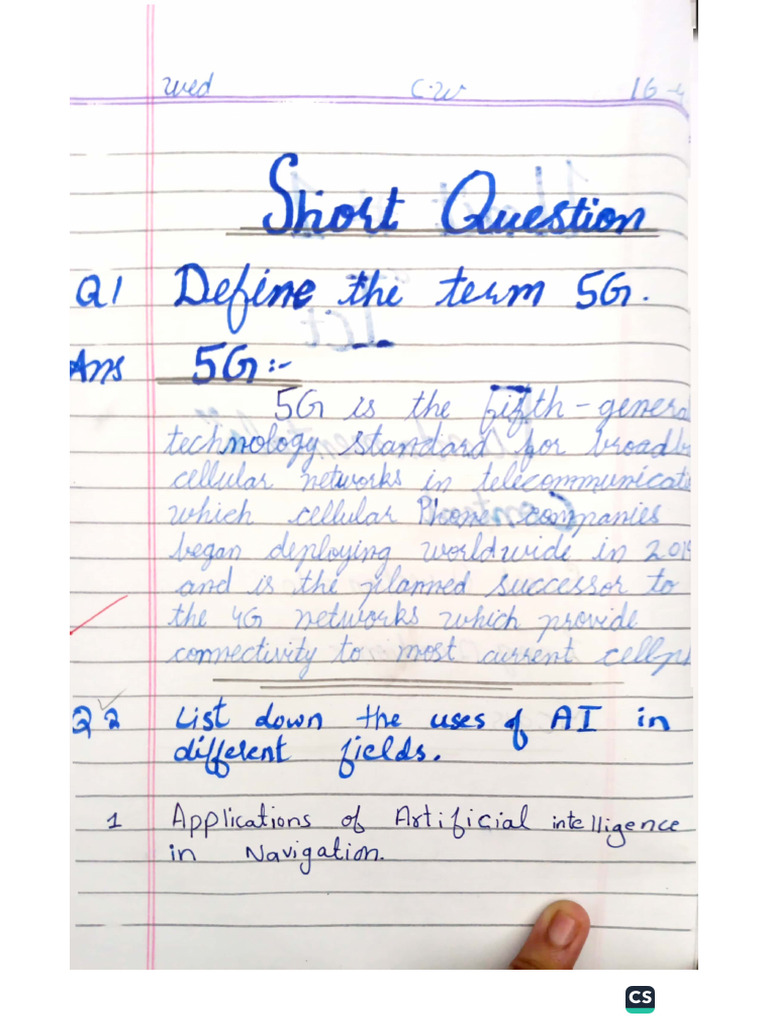 Wed C.W 16-4
Short Question
Q1 Define the term 5G.
Ans 5G:-
5G is the fifth-genera
technology standard for broadb
cellular networks in telecommunicati
which cellular Phone companies
began deploying worldwide in 201
and is the planned successor to
the 4G networks which provide
connectivity to most current cellph
Q2 List down the uses of AI in
different fields.
1 Applications of Artificial intelligence
in Navigation.
CS